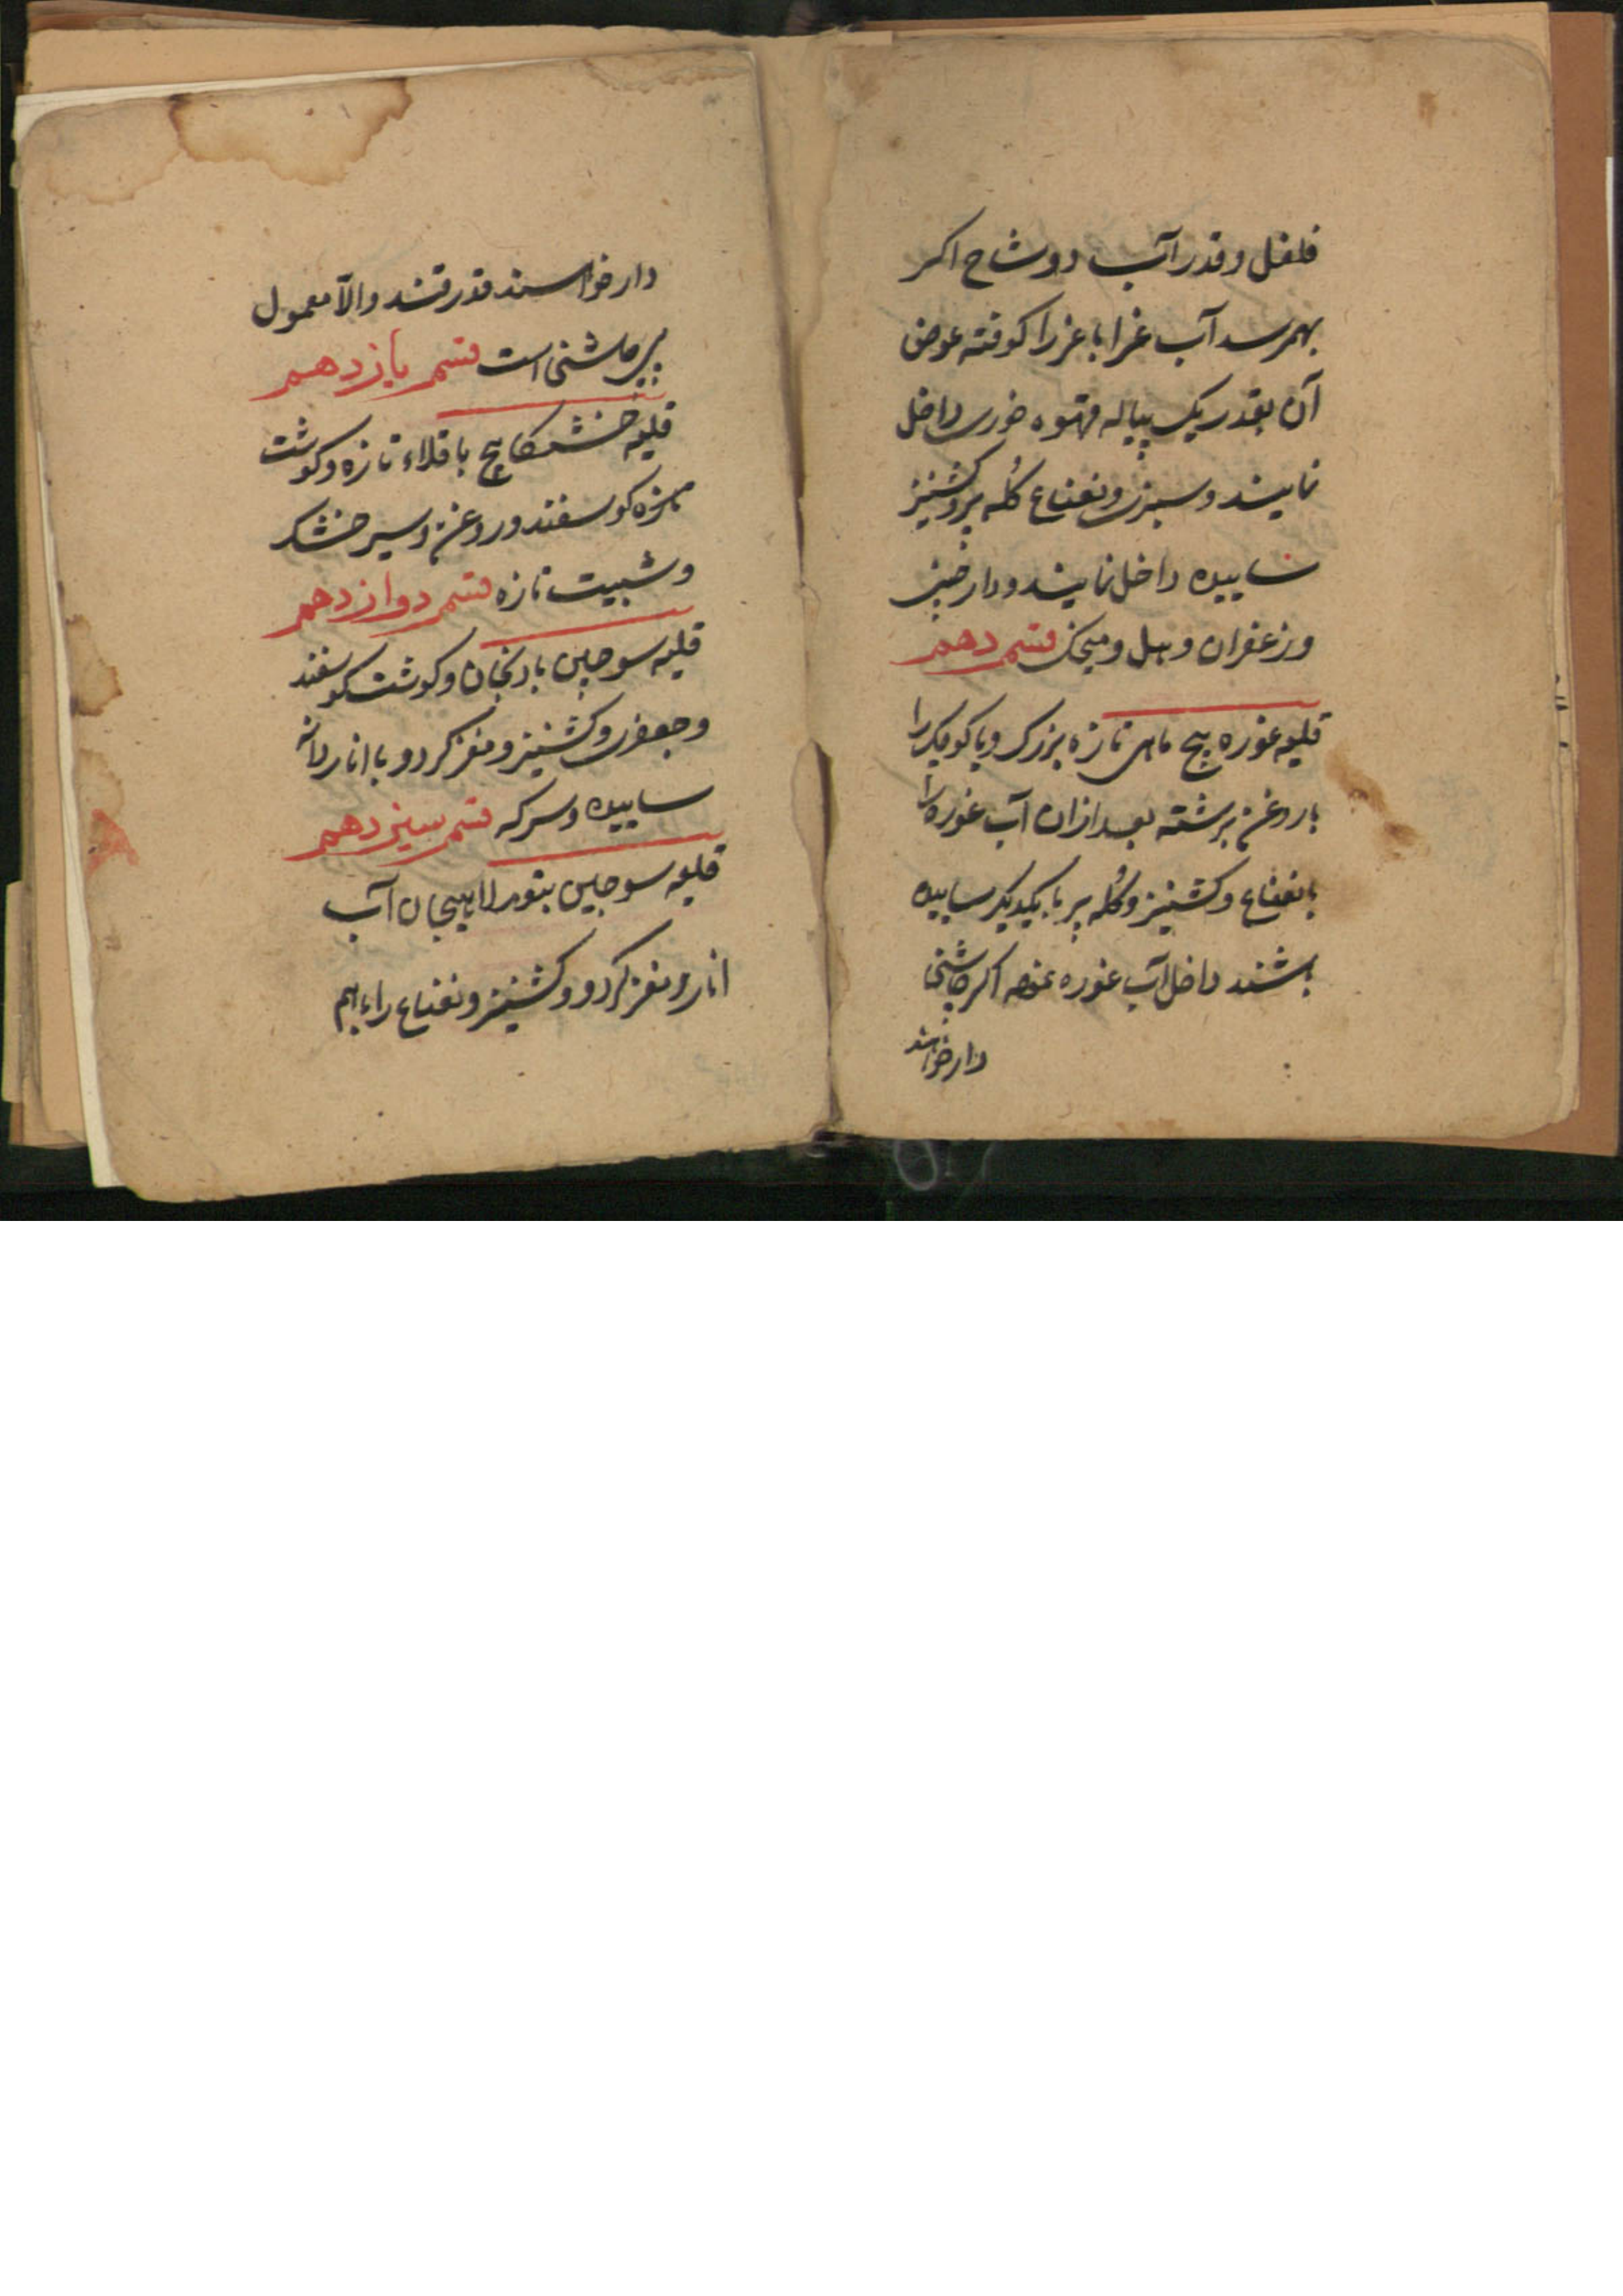 فلفل و قدر آب دوشاخ اکر
بهمرسد آب غرا با غرزا کوفته عوض
آن بقدر یک پیاله قهوه خوری داخل
نمایند و سبزی و نعناع کُله پر و کشنیز
ساییده داخل نمایند و دارچینی
و زعفران و هیل و میخک قسم دهم
قلیه غوره پیچ ماهی تازه بزرک و یا کوچک را
با روغن برشته بعد ازان آب غوره را
با نعناع و کشنیز و کُله پر با یکدیکر ساییده
باشند داخل آب غوره نموده اکر چاشنی
دار خواسند
دار خواسند قدر قند والآ معمول
بی چاشنی است قسم یازدهم
قلیه خشکاپیچ باقلاء تازه و کوشت
بره کوسفند و روغن و سیر خشک
و شبیت تازه قسم دوازدهم
قلیه سوجابی بادنجان و کوشت کوسفند
و جعفری و کشنیز و مغز کردو با انار دانه
ساییده و سرکه قسم سیزدهم
قلیه سوجابی بتور لاهیجان آب
انار و مغز کردو و کشنیز و نعناع را باهم